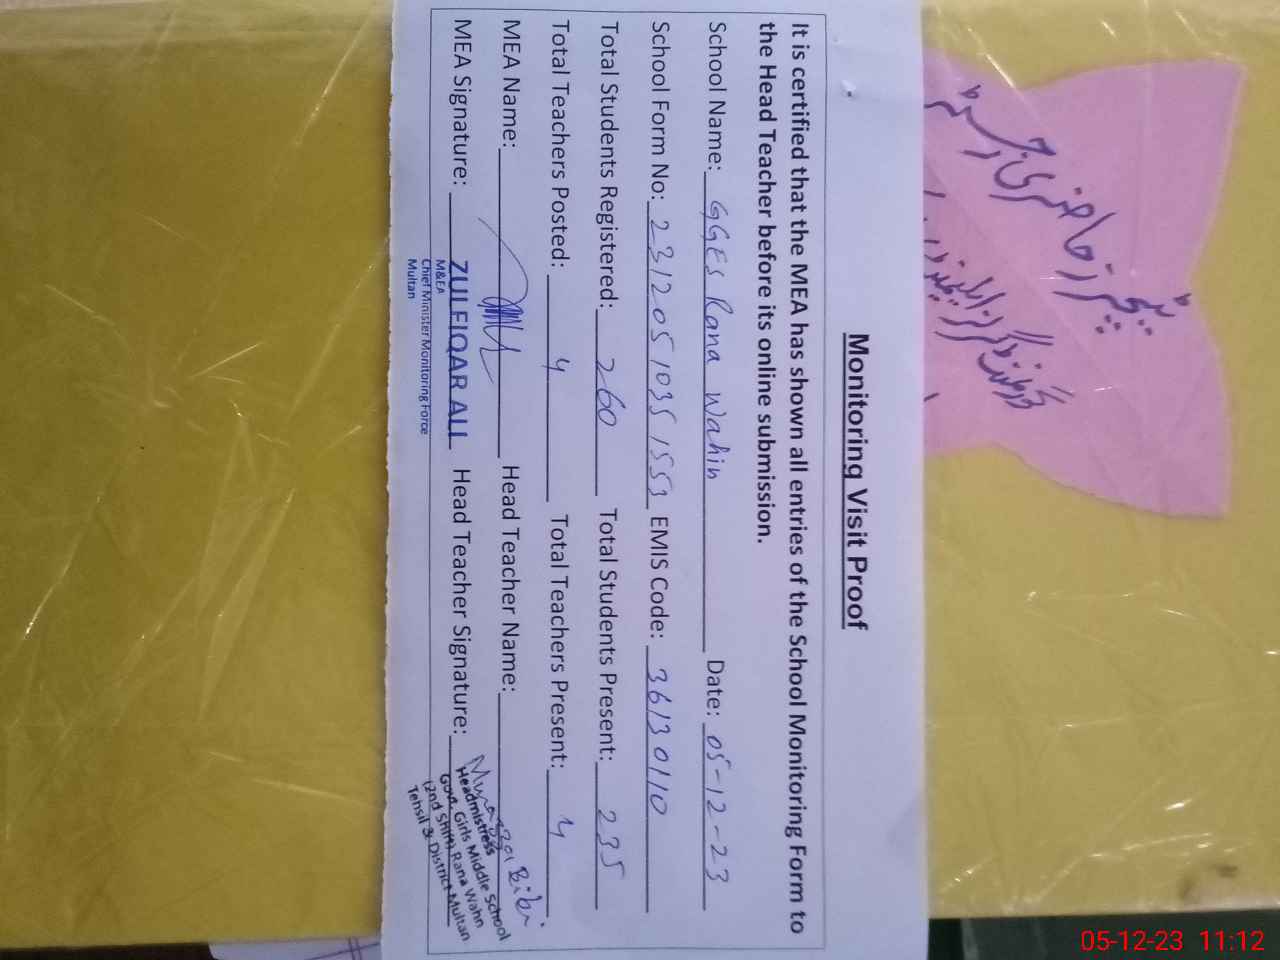 Monitoring Visit Proof
It is certified that the MEA has shown all entries of the School Monitoring Form to
the Head Teacher before its online submission.
School Name: GGES Rana Wahin Date: 05-12-23
School Form No: 231205 1035 1553 EMIS Code: 36130110
Total Students Registered: 260 Total Students Present: 235
Total Teachers Posted: 4 Total Teachers Present: 4
MEA Name: Head Teacher Name:
MEA Signature: Head Teacher Signature:
ZULFIQAR ALI
M&EA
Chief Minister Monitoring Force
Multan
Bibi
Headmistress
Govt. Girls Middle School
(2nd Shift) Rana Wahn
Tehsil & District Multan
ٹیچرز حاضری رجسٹر
گورنمنٹ گرلز ایلیمنٹری
05-12-23 11:12